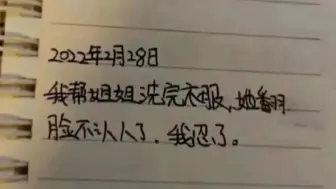 2022年2月28日
我帮姐姐洗完衣服，她翻
脸不认人了，我忍了。